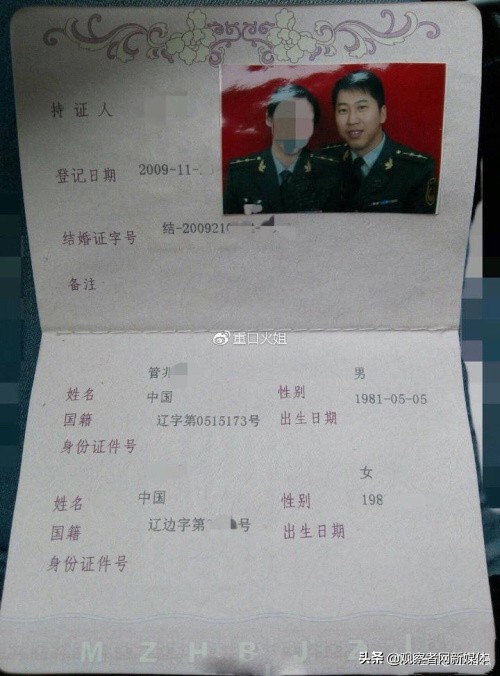 持证人
登记日期 2009-11-
结婚证字号 结-200921
备注
@重口火姐
管兆 男
姓名 中国 性别 1981-05-05
国籍 辽字第0515173号 出生日期
身份证件号
女
姓名 中国 性别 198
国籍 辽边字第 号 出生日期
身份证件号
MZHBJZJ
头条 @观察者网新媒体